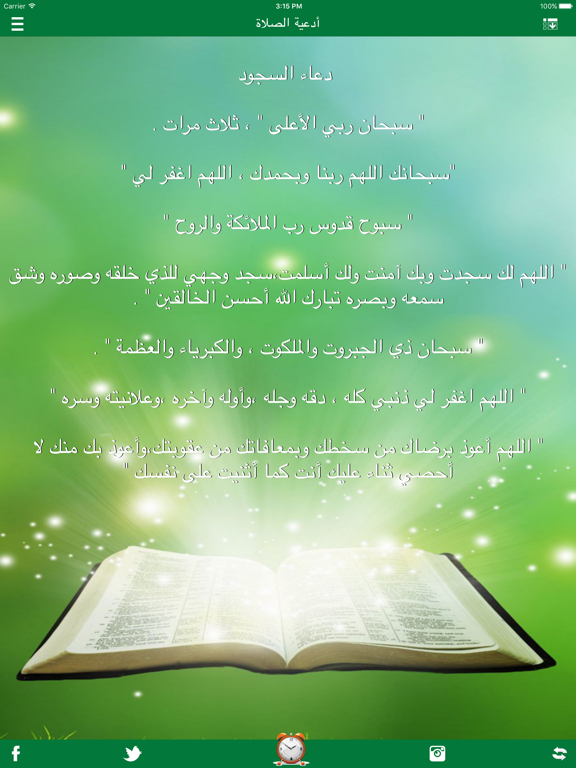 Carrier
3:15 PM
100%
أدعية الصلاة
دعاء السجود
" سبحان ربي الأعلى " ، ثلاث مرات .
"سبحانك اللهم ربنا وبحمدك ، اللهم اغفر لي "
" سبوح قدوس رب الملائكة والروح "
" اللهم لك سجدت وبك آمنت ولك أسلمت،سجد وجهي للذي خلقه وصوره وشق
سمعه وبصره تبارك الله أحسن الخالقين " .
" سبحان ذي الجبروت والملكوت ، والكبرياء والعظمة " .
" اللهم اغفر لي ذنبي كله ، دقه وجله ،وأوله وآخره ،وعلانيته وسره "
" اللهم أعوذ برضاك من سخطك وبمعافاتك من عقوبتك،وأعوذ بك منك لا
أحصي ثناء عليك أنت كما أثنيت على نفسك "